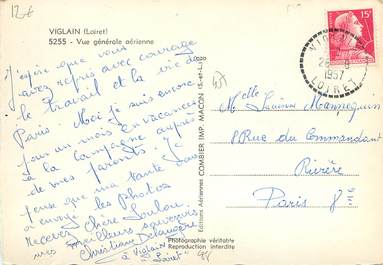 12€
VIGLAIN (Loiret)
5255 - Vue générale aérienne
15F
VIGLAIN
LOIRET
1957
j'espère que vous
avez repris avec courage
le travail et la vie de
Paris. Moi je suis encore
pour un mois en vacances
à la campagne auprès
de mes parents. Je
pense que ma tante Loulou
a envoyé les Photos
Recevez Chère Loulou
mes meilleurs souvenirs
Christiane
à Viglain
"Loiret"
Editions Aériennes COMBIER IMP. MACON (S.-et-L.)
Photographie véritable
Reproduction interdite
Melle Louison Mannequin
8 Rue du Commandant
Rivière
Paris 8me